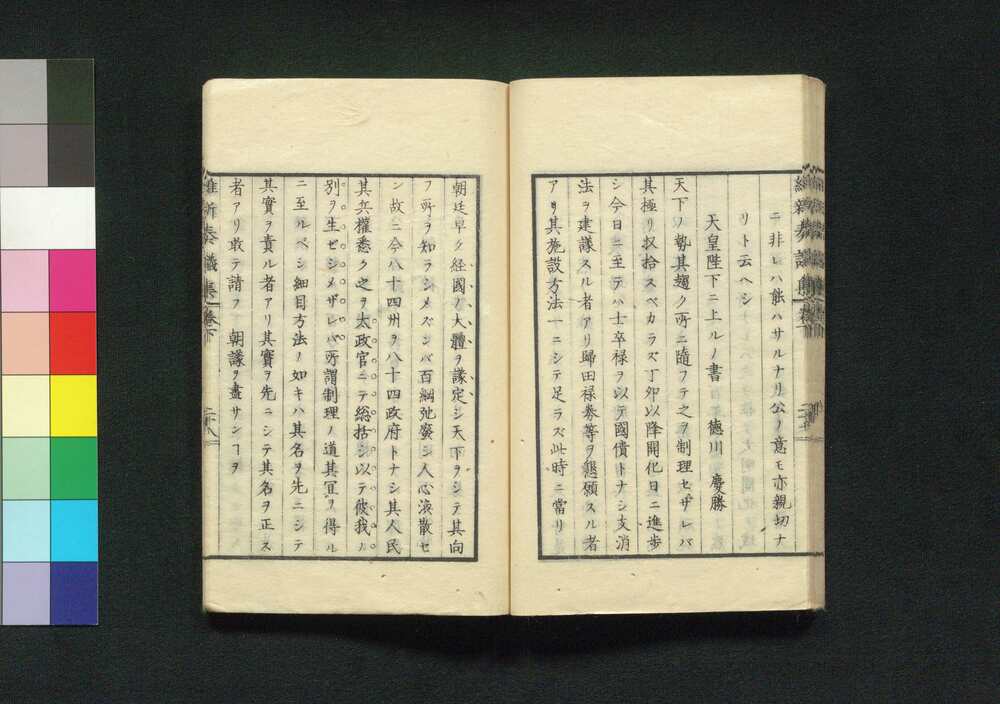 ニ非レハ能ハサルナリ公ノ意モ亦親切ナ
リト云ヘシ
天皇陛下ニ上ルノ書 徳川 慶勝
天下ノ勢其趨ク所ニ隨フテ之ヲ制理セザレバ
其極リ収拾スベカラズ丁卯以降開化日ニ進歩
シ今日ニ至テハ士卒禄ヲ以テ國債トナシ支消
法ヲ建議スル者アリ歸田禄券等ヲ懇願スル者
アリ其施設方法一ニシテ足ラズ此時ニ當リ
朝廷早ク経國ノ大體ヲ議定シ天下ヲシテ其向
フ所ヲ知ラシメズンバ百綱弛廢シ人心渙散セ
ン故ニ今八十四州ヲ八十四政府トナシ其人民
其兵權悉ク之ヲ太政官ニテ総括シ以テ彼我ノ
別ヲ生ゼシメザレバ所謂制理ノ道其冝ヲ得ル
ニ至ルベシ細目方法ノ如キハ其名ヲ先ニシテ
其實ヲ責ル者アリ其實ヲ先ニシテ其名ヲ正ス
者アリ敢テ請フ 朝議ヲ盡サンヿヲ
維新奏議集 卷下 二十八